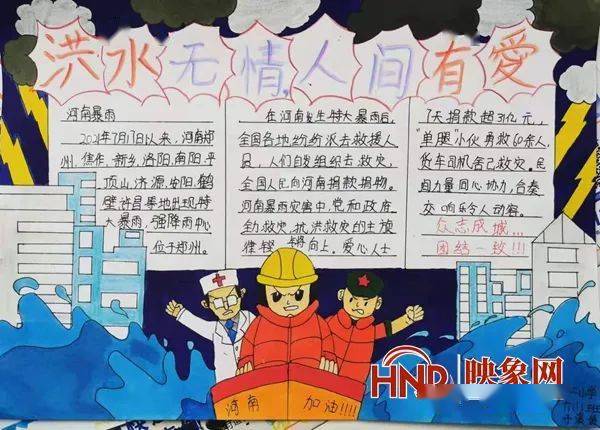 洪水无情人间有爱
河南暴雨
2021年7月17日以来，河南郑
州、焦作、新乡、洛阳、南阳、平
顶山、济源、安阳、鹤
壁、许昌等地出现特
大暴雨，强降雨中心
位于郑州。
在河南发生特大暴雨后，
全国各地纷纷派去救援人
员，人们自发组织去救灾，
全国人民向河南捐款捐物。
河南暴雨灾害中，党和政府
全力救灾，抗洪救灾的主旋
律铿锵向上。爱心人士
7天捐款超31亿元，
"单腿"小伙勇救60余人，
货车司机舍己救灾。民
间力量同心协力，合奏
交响乐令人动容。
众志成城，
团结一致！！！
河南 加油！！！！
HND 映象网